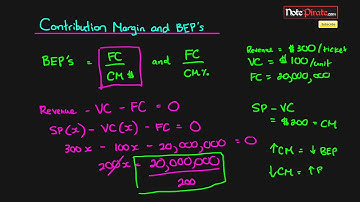 Contribution Margin and BEP's
NotePirate.com
Subscribe
BEP's = FC / CM $ and FC / CM %
Revenue = $300/ticket
VC = $100/unit
FC = 20,000,000
Revenue - VC - FC = 0
SP(x) - VC(x) - FC = 0
300x - 100x - 20,000,000 = 0
200x = 20,000,000
200
SP - VC
= $200 = CM
↑CM = ↓BEP
↓CM = ↑